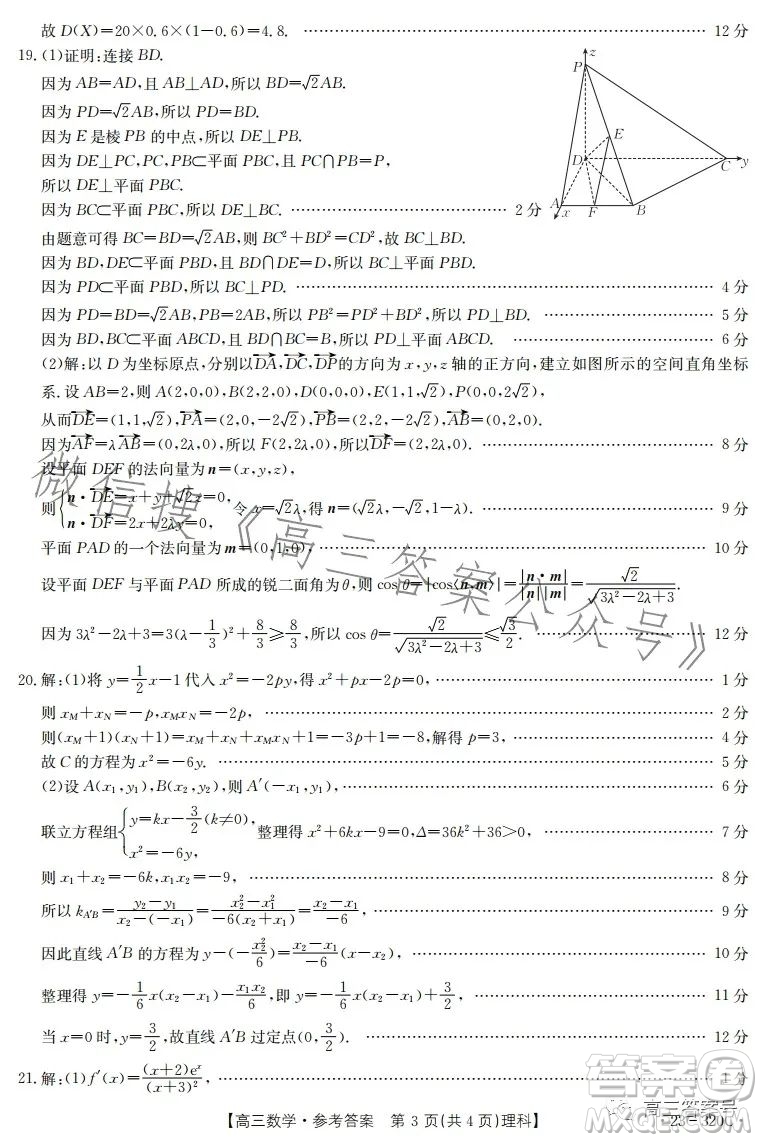 故 D(X)=20×0.6×(1-0.6)=4.8. …… 12 分
19. (1)证明:连接 BD.
因为 AB=AD,且 AB⊥AD,所以 BD=√2AB.
因为 PD=√2AB,所以 PD=BD.
因为 E 是棱 PB 的中点,所以 DE⊥PB.
因为 DE⊥PC,PC,PB⊂平面 PBC,且 PC∩PB=P,
所以 DE⊥平面 PBC.
因为 BC⊂平面 PBC,所以 DE⊥BC. …… 2 分
由题意可得 BC=BD=√2AB,则 BC²+BD²=CD²,故 BC⊥BD.
因为 BD,DE⊂平面 PBD,且 BD∩DE=D,所以 BC⊥平面 PBD.
因为 PD⊂平面 PBD,所以 BC⊥PD. …… 4 分
因为 PD=BD=√2AB,PB=2AB,所以 PB²=PD²+BD²,所以 PD⊥BD. …… 5 分
因为 BD,BC⊂平面 ABCD,且 BD∩BC=B,所以 PD⊥平面 ABCD. …… 6 分
z
P
E
D
C
y
A
x
F
B
(2)解:以 D 为坐标原点,分别以DA→,DC→,DP→的方向为 x,y,z 轴的正方向,建立如图所示的空间直角坐标
系.设 AB=2,则 A(2,0,0),B(2,2,0),D(0,0,0),E(1,1,√2),P(0,0,2√2),
从而DE→=(1,1,√2),PA→=(2,0,-2√2),PB→=(2,2,-2√2),AB→=(0,2,0).
因为AF→=λAB→=(0,2λ,0),所以 F(2,2λ,0),所以DF→=(2,2λ,0). …… 8 分
设平面 DEF 的法向量为 n=(x,y,z),
则{n·DE→=x+y+√2z=0, n·DF→=2x+2λy=0, 令 x=√2λ,得 n=(√2λ,-√2,1-λ). …… 9 分
平面 PAD 的一个法向量为 m=(0,1,0), …… 10 分
设平面 DEF 与平面 PAD 所成的锐二面角为 θ,则 cos θ=|cos⟨n,m⟩|=|n·m|/(|n||m|)=√2/√(3λ²-2λ+3).
因为 3λ²-2λ+3=3(λ-1/3)²+8/3≥8/3,所以 cos θ=√2/√(3λ²-2λ+3)≤√3/2. …… 12 分
20. 解:(1)将 y=1/2x-1 代入 x²=-2py,得 x²+px-2p=0, …… 1 分
则 x_M+x_N=-p,x_Mx_N=-2p, …… 2 分
则(x_M+1)(x_N+1)=x_M+x_N+x_Mx_N+1=-3p+1=-8,解得 p=3, …… 4 分
故 C 的方程为 x²=-6y. …… 5 分
(2)设 A(x₁,y₁),B(x₂,y₂),则 A′(-x₁,y₁), …… 6 分
联立方程组{y=kx-3/2(k≠0), x²=-6y, 整理得 x²+6kx-9=0,Δ=36k²+36>0, …… 7 分
则 x₁+x₂=-6k,x₁x₂=-9, …… 8 分
所以 k_A′B=(y₂-y₁)/(x₂-(-x₁))=(x₂²-x₁²)/(-6(x₂+x₁))=(x₂-x₁)/(-6), …… 9 分
因此直线 A′B 的方程为 y-(-x₂²/6)=(x₂-x₁)/(-6)(x-x₂), …… 10 分
整理得 y=-1/6x(x₂-x₁)-x₁x₂/6,即 y=-1/6x(x₂-x₁)+3/2, …… 11 分
当 x=0 时,y=3/2,故直线 A′B 过定点(0,3/2). …… 12 分
21. 解:(1)f′(x)=(x+2)eˣ/(x+3)², …… 1 分
【高三数学·参考答案 第 3 页(共 4 页)理科】
23-320C
微信搜《高三答案公众号》
高三答案号
答案圈
MXQE.COM